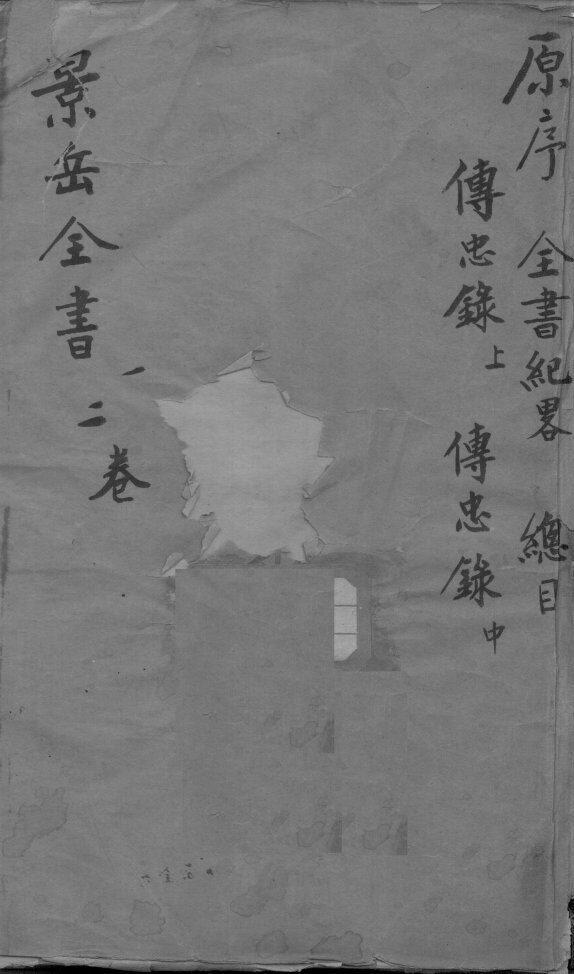 原序 全書紀畧 總目
傳忠錄上 傳忠錄中
景岳全書 一二卷